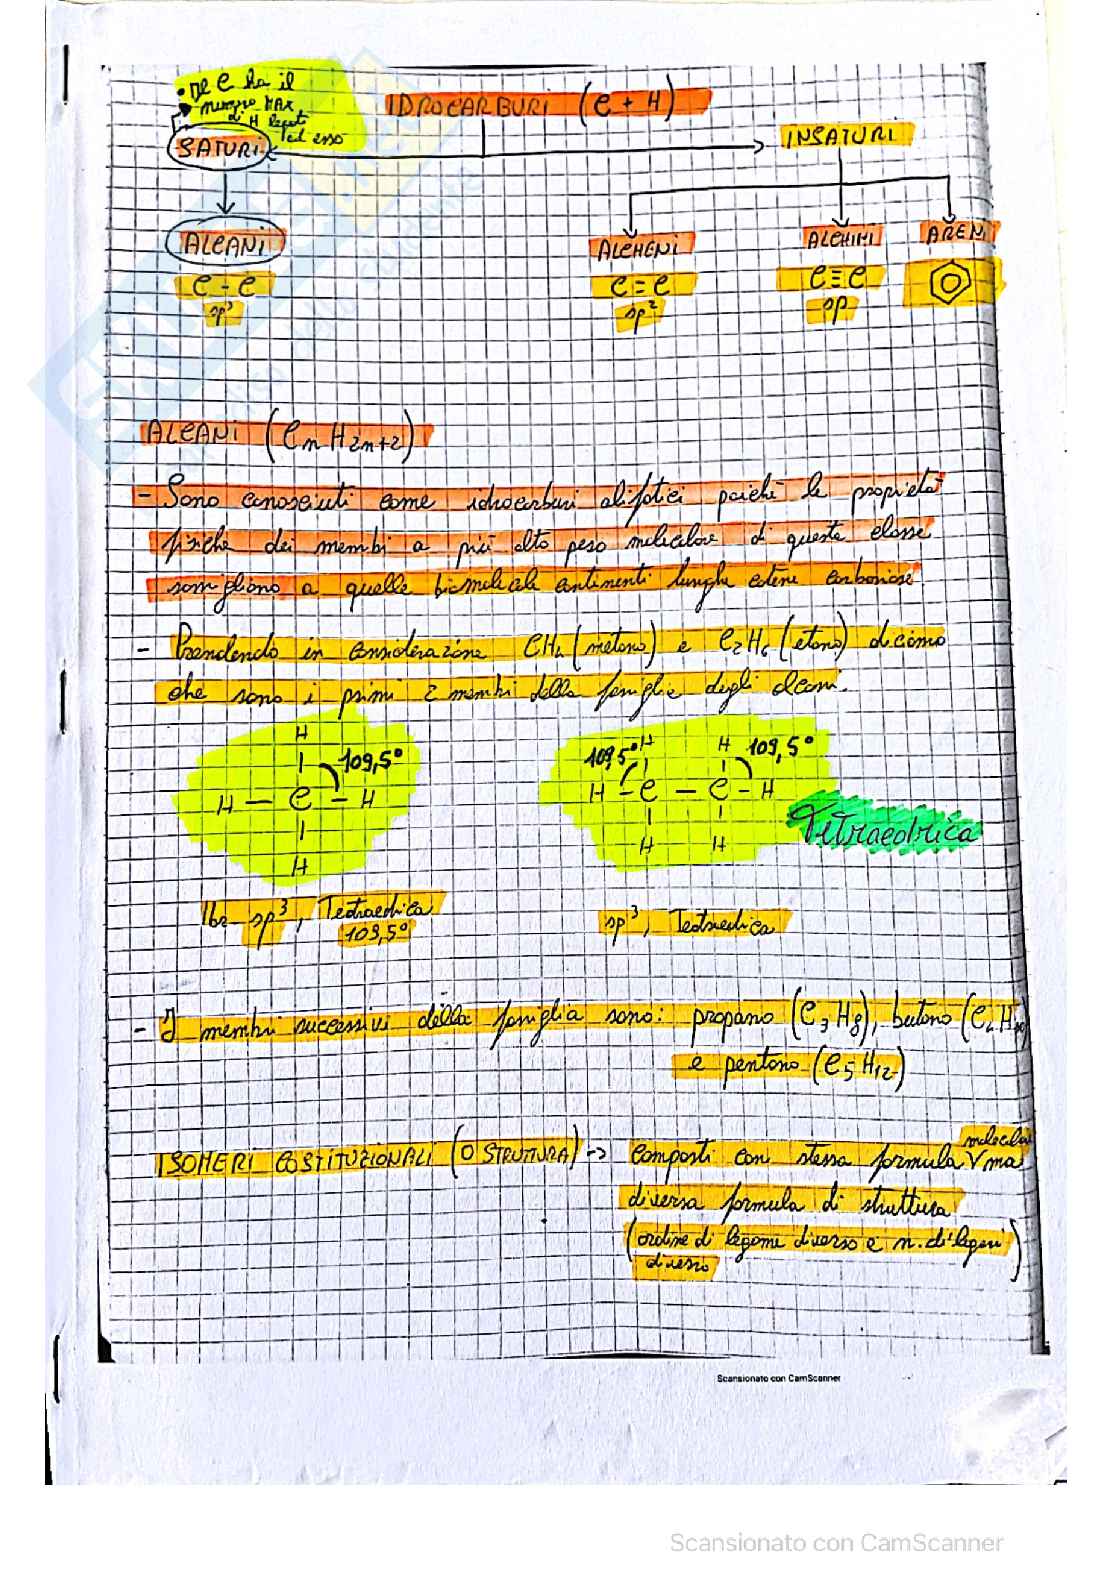 • Il C ha il
numero MAX
di H legati
ad esso
IDROCARBURI (C + H)
SATURI
INSATURI
ALCANI
ALCHENI
ALCHINI
ARENI
C - C
C = C
C ≡ C
sp³
sp²
sp
ALCANI (CnH2n+2)
- Sono conosciuti come idrocarburi alifatici poiché le proprietà
fisiche dei membri a più alto peso molecolare di questa classe
somigliano a quelle biomolecole contenenti lunghe catene carboniose
- Prendendo in considerazione CH4 (metano) e C2H6 (etano) diciamo
che sono i primi 2 membri della famiglia degli alcani.
H
109,5°
H — C — H
H
109,5° H H 109,5°
H — C — C — H
H H
Tetraedrica
Ibr sp³, Tetraedrica
109,5°
sp³, Tetraedrica
- I membri successivi della famiglia sono: propano (C3H8), butano (C4H10)
e pentano (C5H12)
ISOMERI COSTITUZIONALI (O STRUTTURA) -> composti con stessa formula V ma
molecolare
diversa formula di struttura
(ordine di legame diverso e n. di legami
diverso)
Scansionato con CamScanner
Scansionato con CamScanner